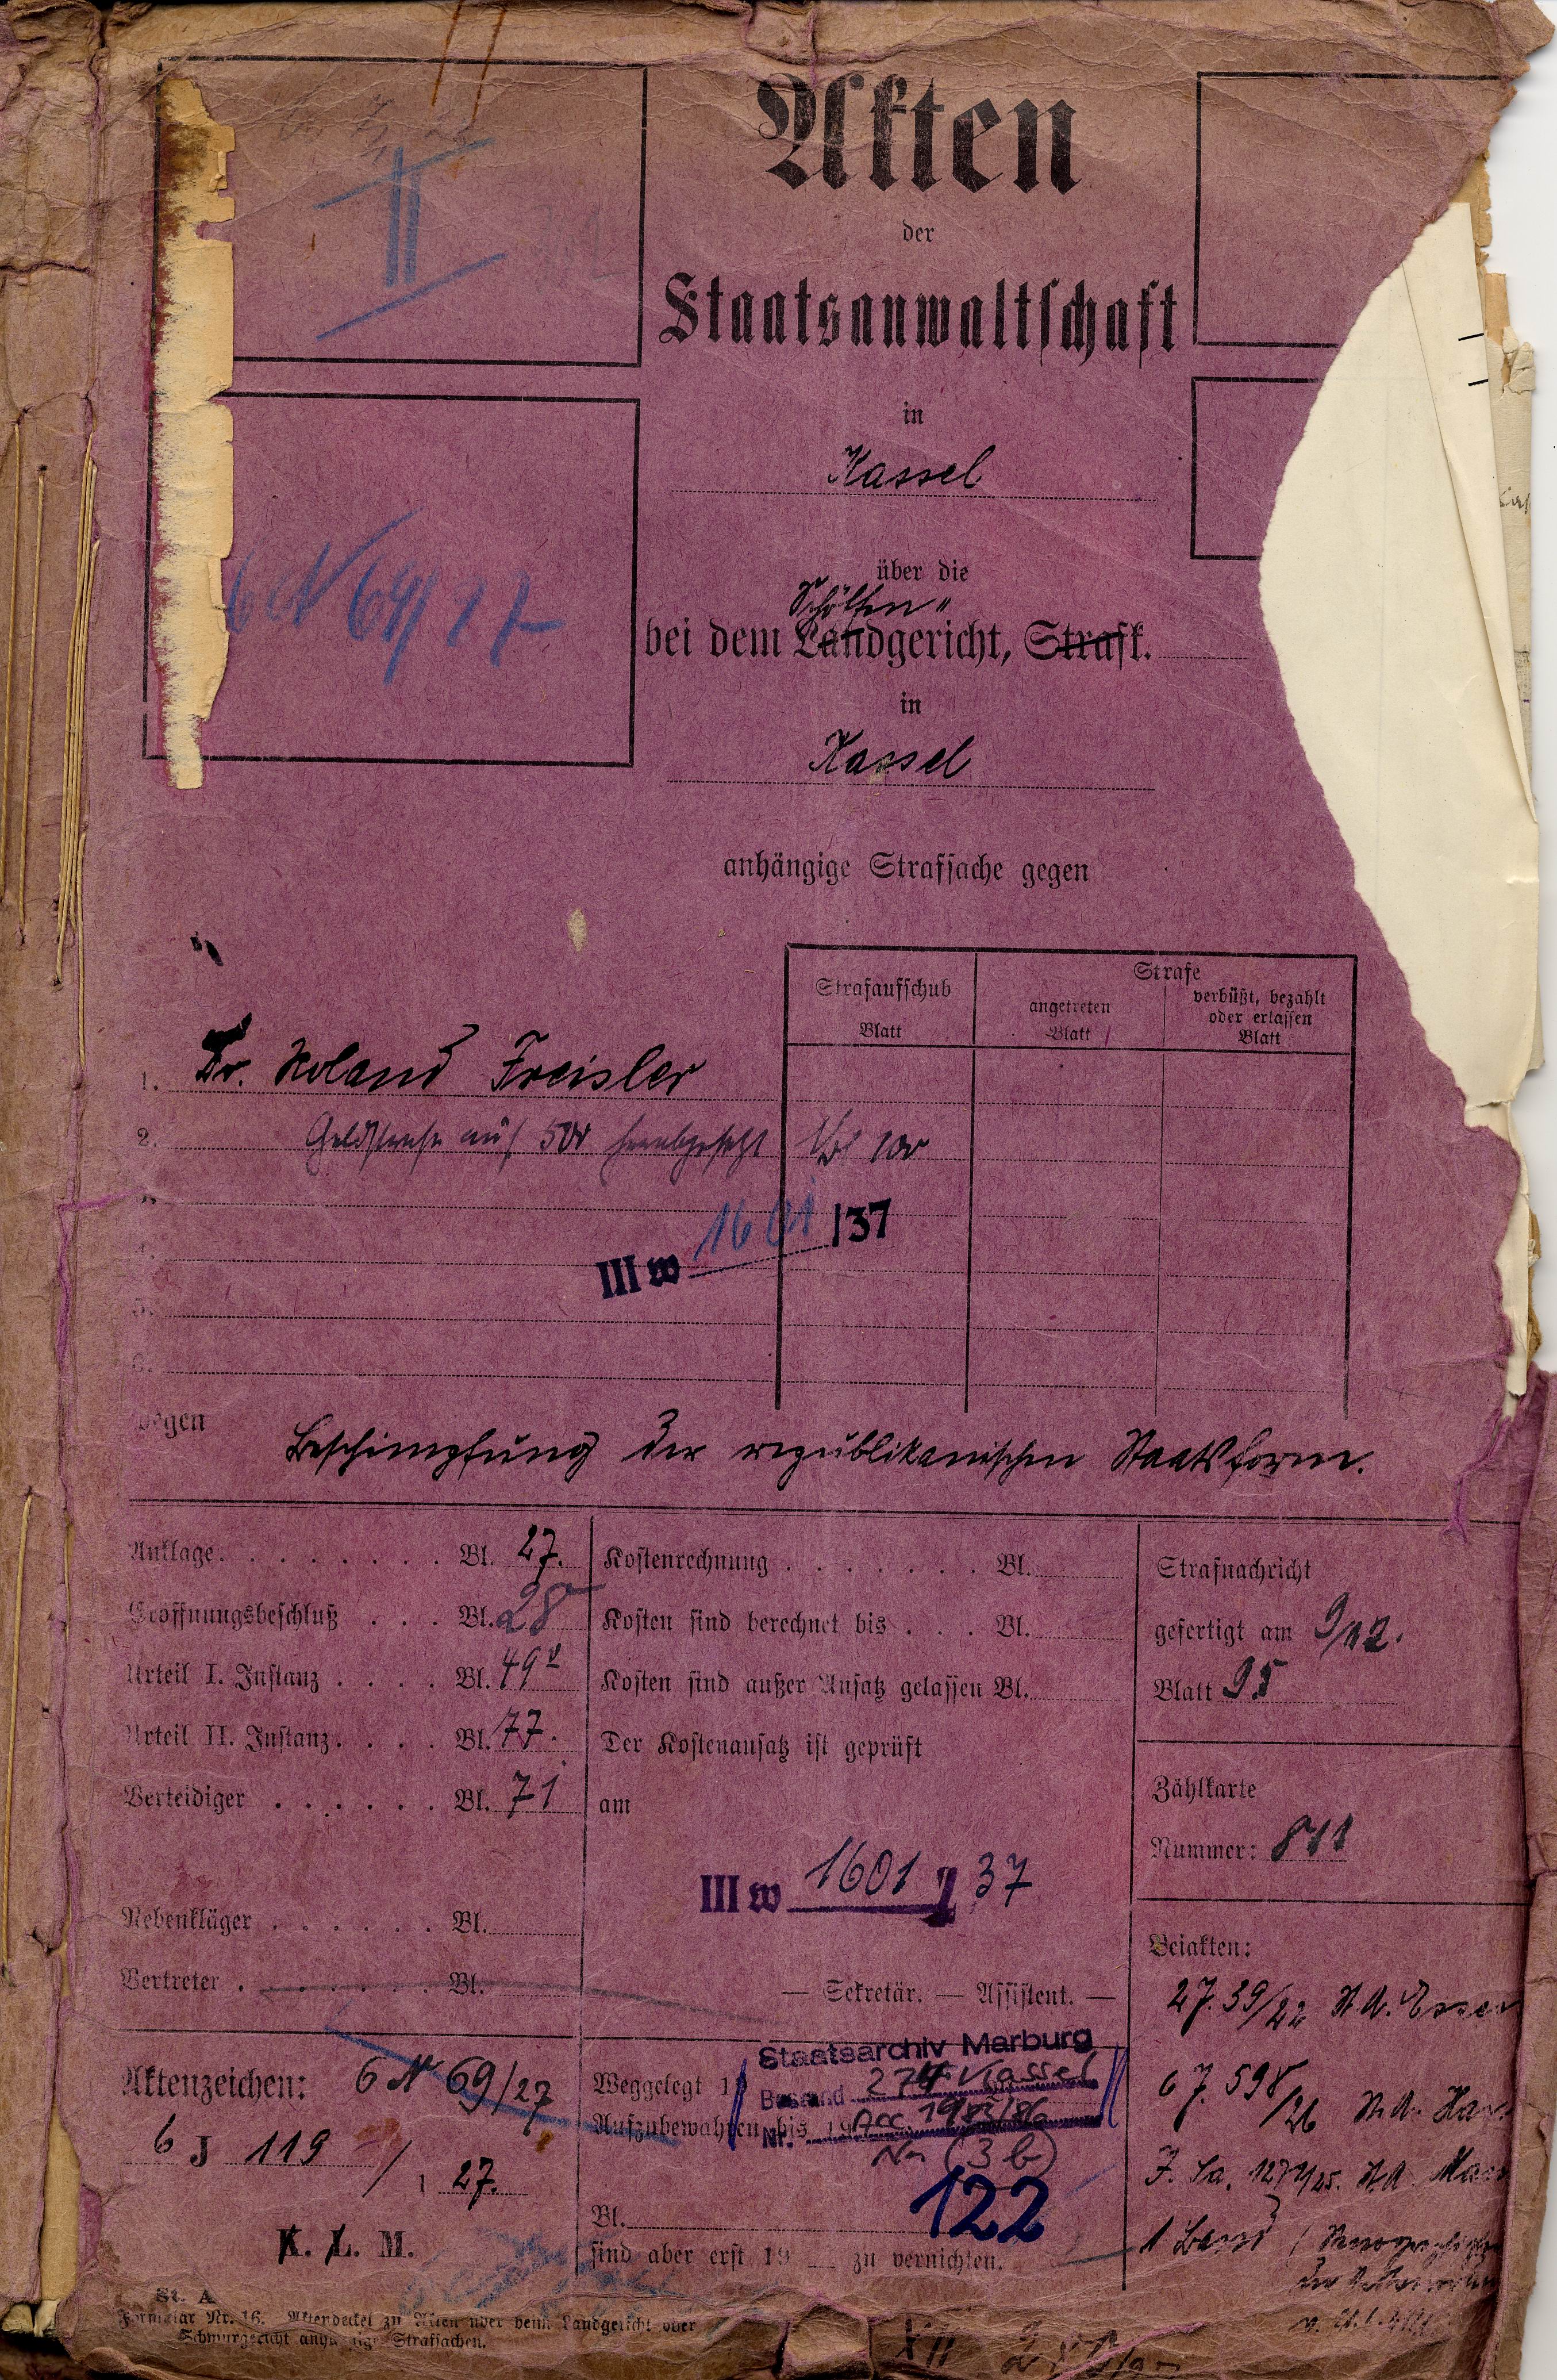 II
Akten
der
Staatsanwaltschaft
in
Kassel
6 N 69/27
über die
Schöffen"
bei dem Landgericht, Strafk.
in
Kassel
anhängige Strafsache gegen
Strafaufschub
Blatt
Strafe
angetreten
Blatt
verbüßt, bezahlt
oder erlassen
Blatt
1. Dr. Roland Freisler
2. Geldstrafe auf herabgesetzt Bl
III w 1601 /37
5.
6.
wegen Beschimpfung der republikanischen Staatsform.
Anklage. Bl. 27.
Eröffnungsbeschluß Bl. 28
Urteil I. Instanz Bl. 49v
Urteil II. Instanz. Bl. 77.
Verteidiger Bl. 71
Nebenkläger Bl.
Vertreter Bl.
Kostenrechnung Bl.
Kosten sind berechnet bis Bl.
Kosten sind außer Ansatz gelassen Bl.
Der Kostenansatz ist geprüft
am
III w 1601 / 37
— Sekretär. — Assistent. —
Strafnachricht
gefertigt am 9/12.
Blatt 95
Zählkarte
Nummer: 811
Beiakten:
27. 39/22 St. A. Essen
6 J. 598/26 St. A.
St. A.
1 Band
Aktenzeichen: 6 N 69/27
6 J 119 / 27.
K. L. M.
Weggelegt 19
Aufzubewahren bis 19
Staatsarchiv Marburg
Bestand 274 Kassel
Nr. Acc. 1983/86
Nr (3b)
122
Bl.
sind aber erst 19 zu vernichten.
St. A.
Formular Nr. 16. Aktendeckel zu Akten über beim Landgericht oder
Schwurgericht anhängige Strafsachen.
XII